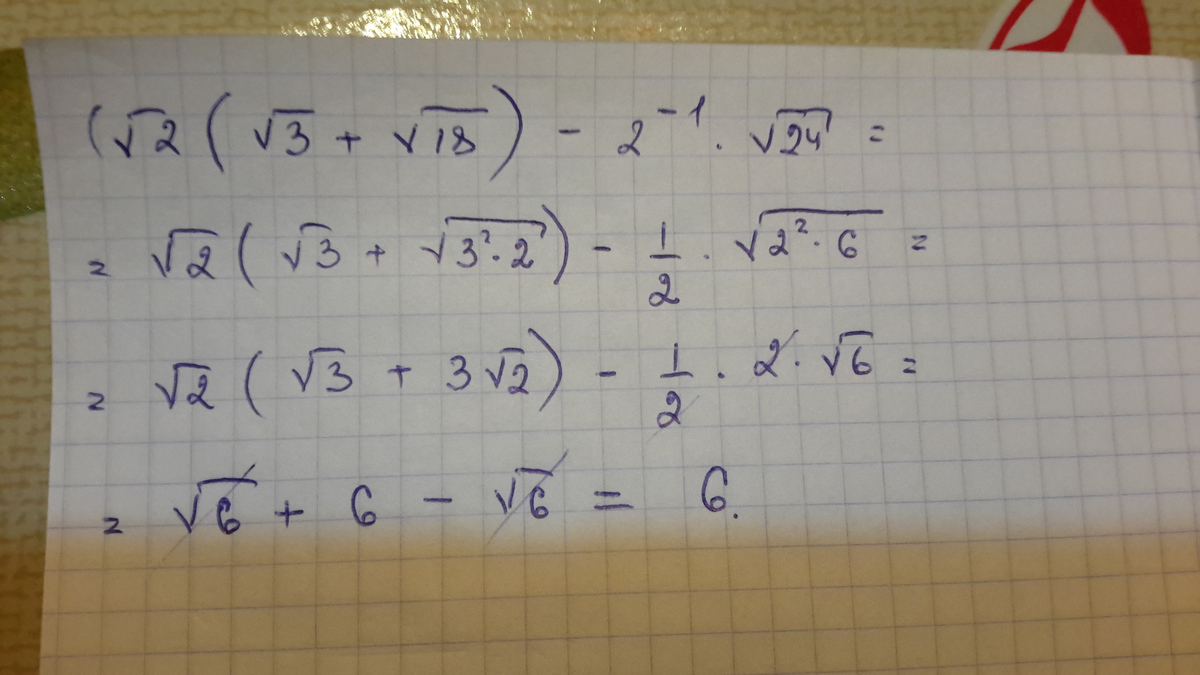 (√2 (√3 + √18) - 2⁻¹ · √24 =
= √2 (√3 + √(3² · 2)) - 1/2 · √(2² · 6) =
= √2 (√3 + 3√2) - 1/2 · 2 · √6 =
= √6 + 6 - √6 = 6.